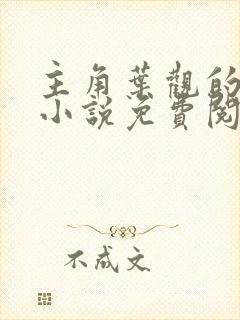 主角葉觀的
小說免費閱
不成文